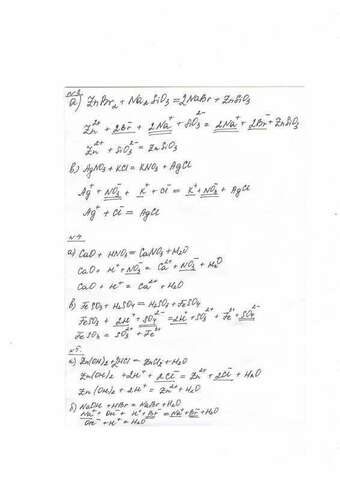 №3
а) ZnBr₂ + Na₂SiO₃ = 2NaBr + ZnSiO₃
Zn²⁺ + 2Br⁻ + 2Na⁺ + SiO₃²⁻ = 2Na⁺ + 2Br⁻ + ZnSiO₃
Zn²⁺ + SiO₃²⁻ = ZnSiO₃
в) AgNO₃ + KCl = KNO₃ + AgCl
Ag⁺ + NO₃⁻ + K⁺ + Cl⁻ = K⁺ + NO₃⁻ + AgCl
Ag⁺ + Cl⁻ = AgCl
№4
а) CaO + HNO₃ = CaNO₃ + H₂O
CaO + H⁺ + NO₃⁻ = Ca²⁺ + NO₃⁻ + H₂O
CaO + H⁺ = Ca²⁺ + H₂O
в) FeSO₃ + H₂SO₄ = H₂SO₃ + FeSO₄
FeSO₃ + 2H⁺ + SO₄²⁻ = 2H⁺ + SO₃²⁻ + Fe²⁺ + SO₄²⁻
FeSO₃ = SO₃²⁻ + Fe²⁺
№5.
а) Zn(OH)₂ + 2HCl = ZnCl₂ + H₂O
Zn(OH)₂ + 2H⁺ + 2Cl⁻ = Zn²⁺ + 2Cl⁻ + H₂O
Zn(OH)₂ + 2H⁺ = Zn²⁺ + H₂O
б) NaOH + HBr = NaBr + H₂O
Na⁺ + OH⁻ + H⁺ + Br⁻ = Na⁺ + Br⁻ + H₂O
OH⁻ + H⁺ = H₂O